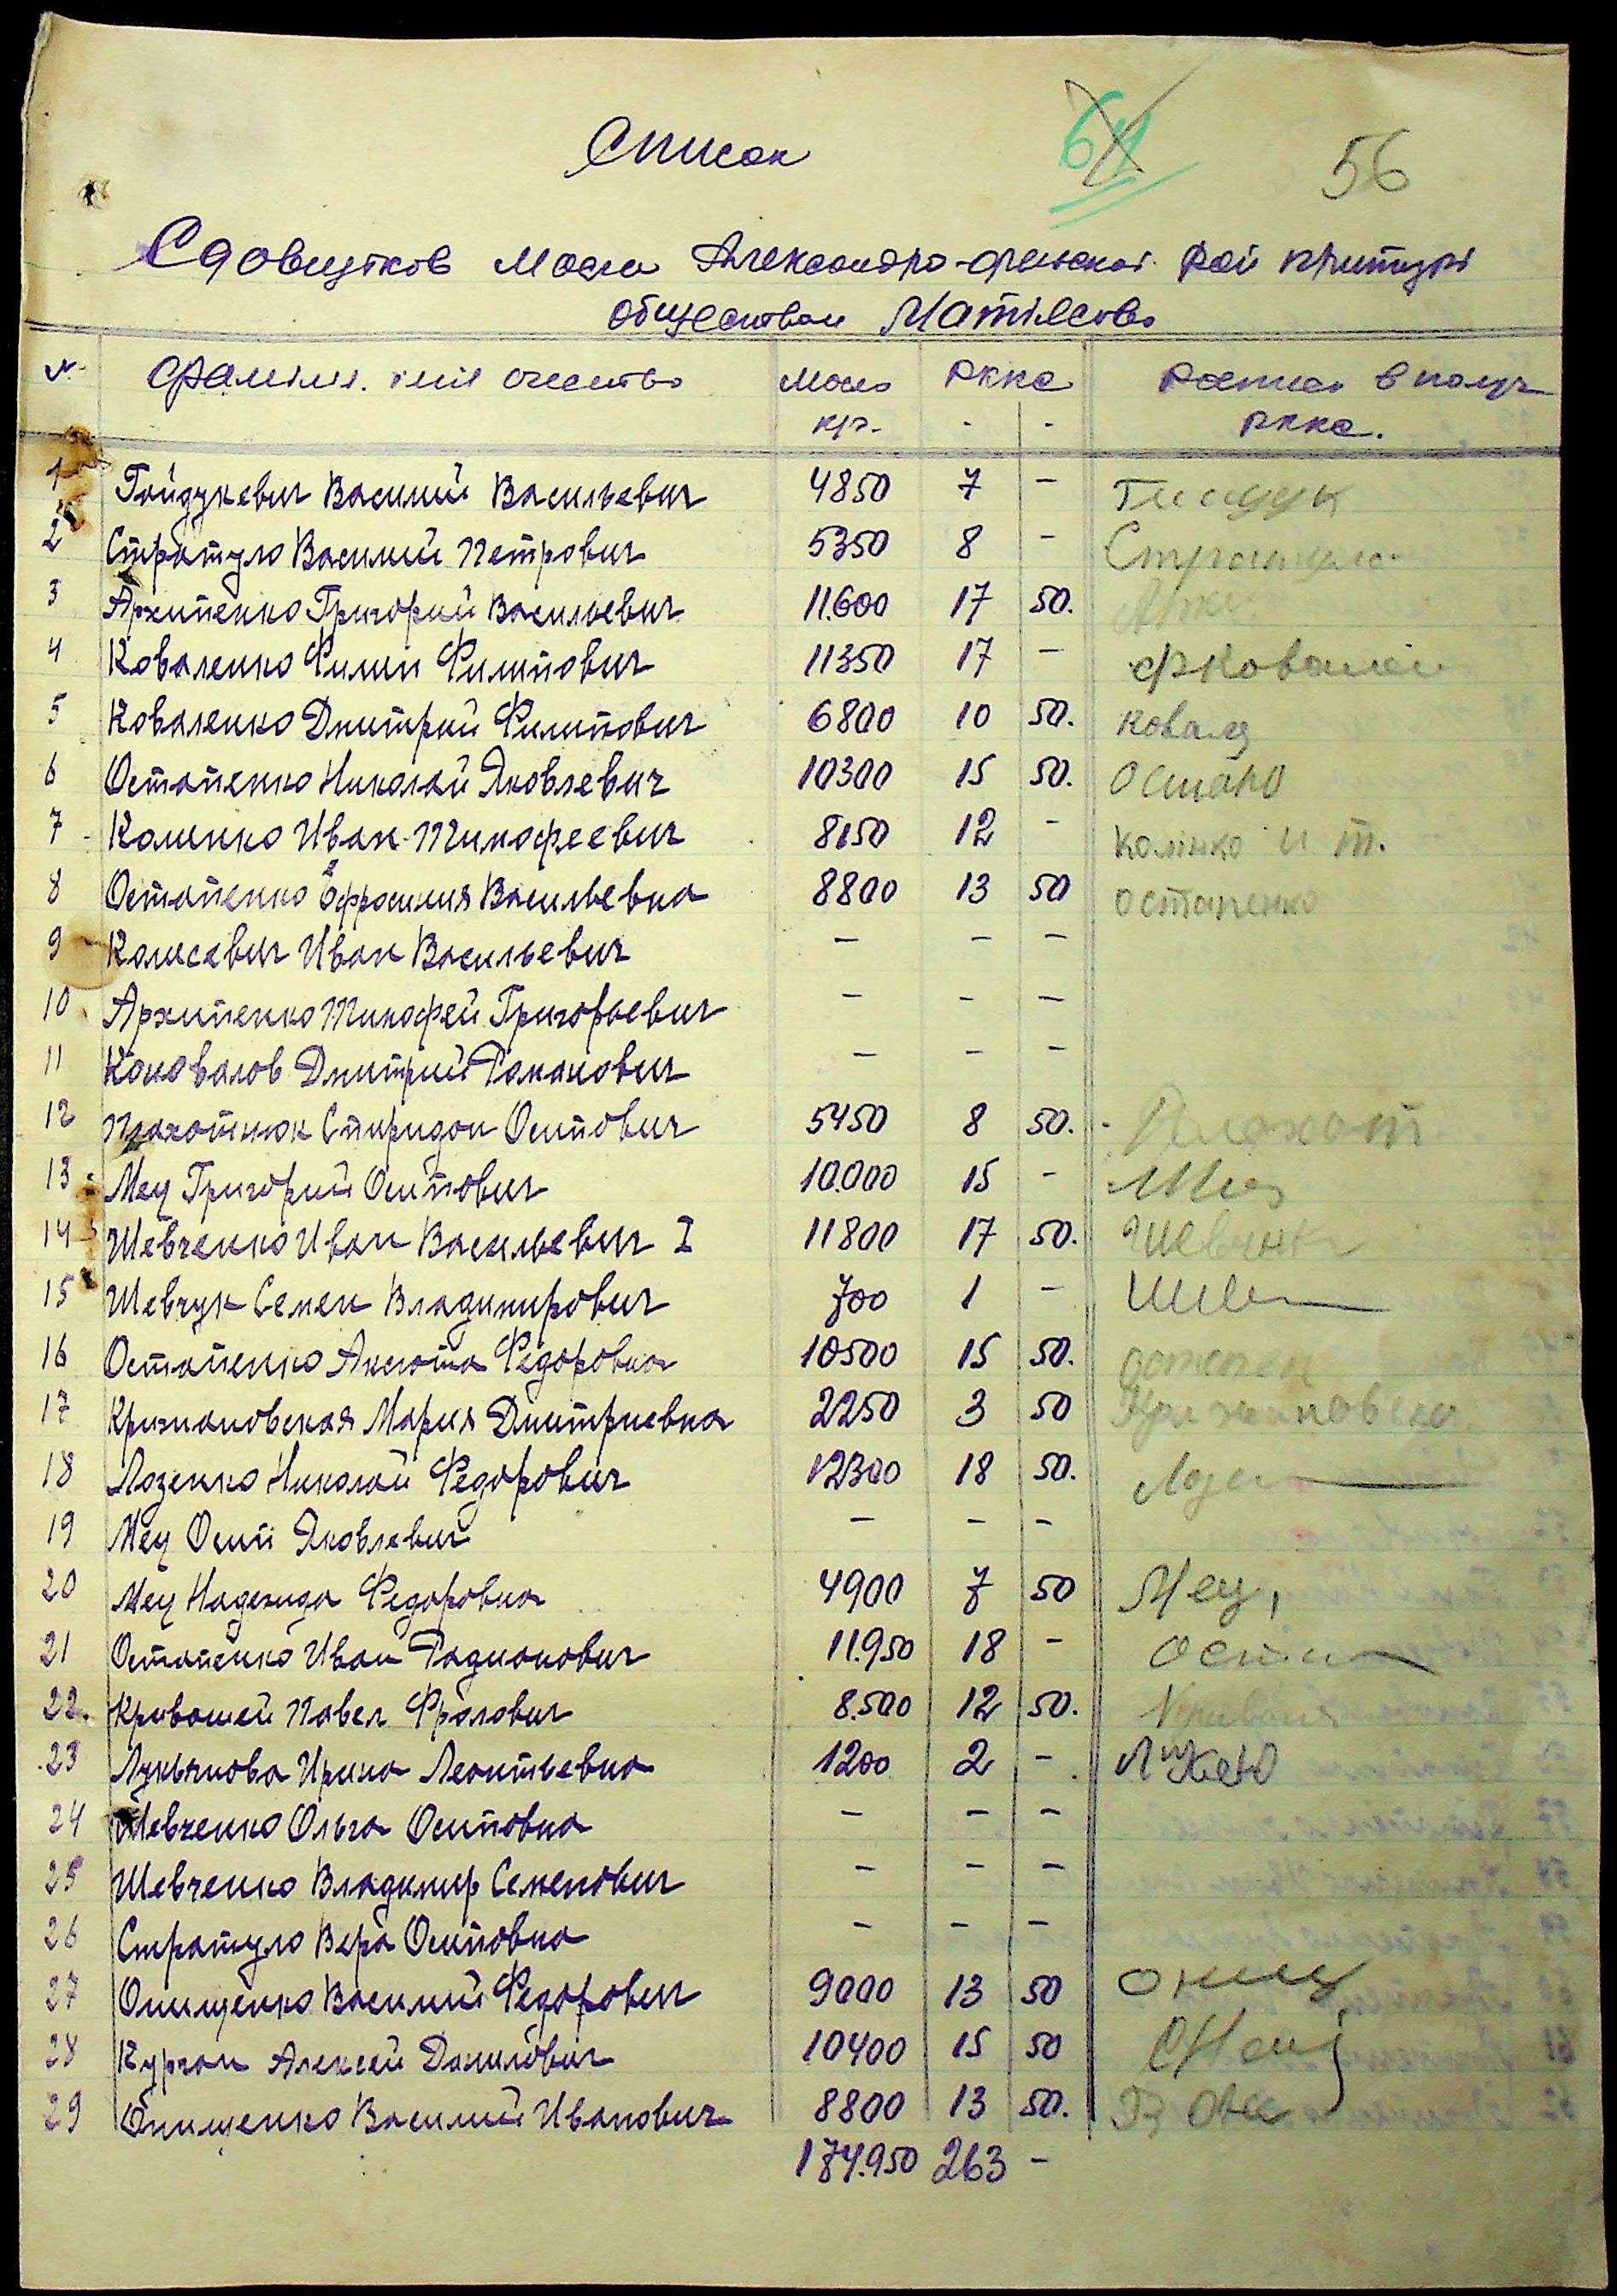 Список
64
56
Сдовщтков Масла Александро-фельской Рай
обществом
№ Фамилия. имя очество Масло ркка Роспись в получ
кгр. - - ркка.
1 Гойдукевич Василий Васильевич 4850 7 -
2 Стратуло Василий Петрович 5350 8 - Стратуло
3 Архипенко Григорий Васильевич 11.600 17 50. Архи
4 Коваленко Филип Филипович 11350 17 -
5 Коваленко Дмитрий Филипович 6800 10 50. Ковал
6 Остапенко Николай Яковлевич 10300 15 50. Остапо
7 Колинко Иван Тимофеевич 8150 12 - Колінко И т.
8 Остапенко Ефросиния Васильевна 8800 13 50 Остапенко
9 Колисевич Иван Васильевич - - -
10 Архипенко Тимофей Григорьевич - - -
11 Коновалов Дмитрий Романович - - -
12 Плахотнюк Спиридон Осипович 5450 8 50. Плахот
13 Мец Григорий Осипович 10.000 15 - Мец
14 Шевченко Иван Васильевич I 11800 17 50.
15 Шевчук Семен Владимирович 700 1 - Шев
16 Остапенко Аксюта Федоровна 10500 15 50.
17 Крижановская Мария Дмитриевна 2250 3 50 Крижановска
18 Лозенко Николай Федорович 12300 18 50. Лозен
19 Мец Осип Яковлевич - - -
20 Мец Надежда Федоровна 4900 7 50 Мец,
21 Остапенко Иван Радионович 11.950 18 - Остап
22. Кривошей Павел Фролович 8.500 12 50.
23 Лукьянова Ирина Леонтьевна 1200 2 -
24 Шевченко Ольга Осиповна - - -
25 Шевченко Владимир Семенович - - -
26 Стратуло Вера Осиповна - - -
27 Онищенко Василий Федорович 9000 13 50 Онищ
28 Курган Алексей Данилович 10400 15 50
29 Онищенко Василий Иванович 8800 13 50.
174.950 263 -